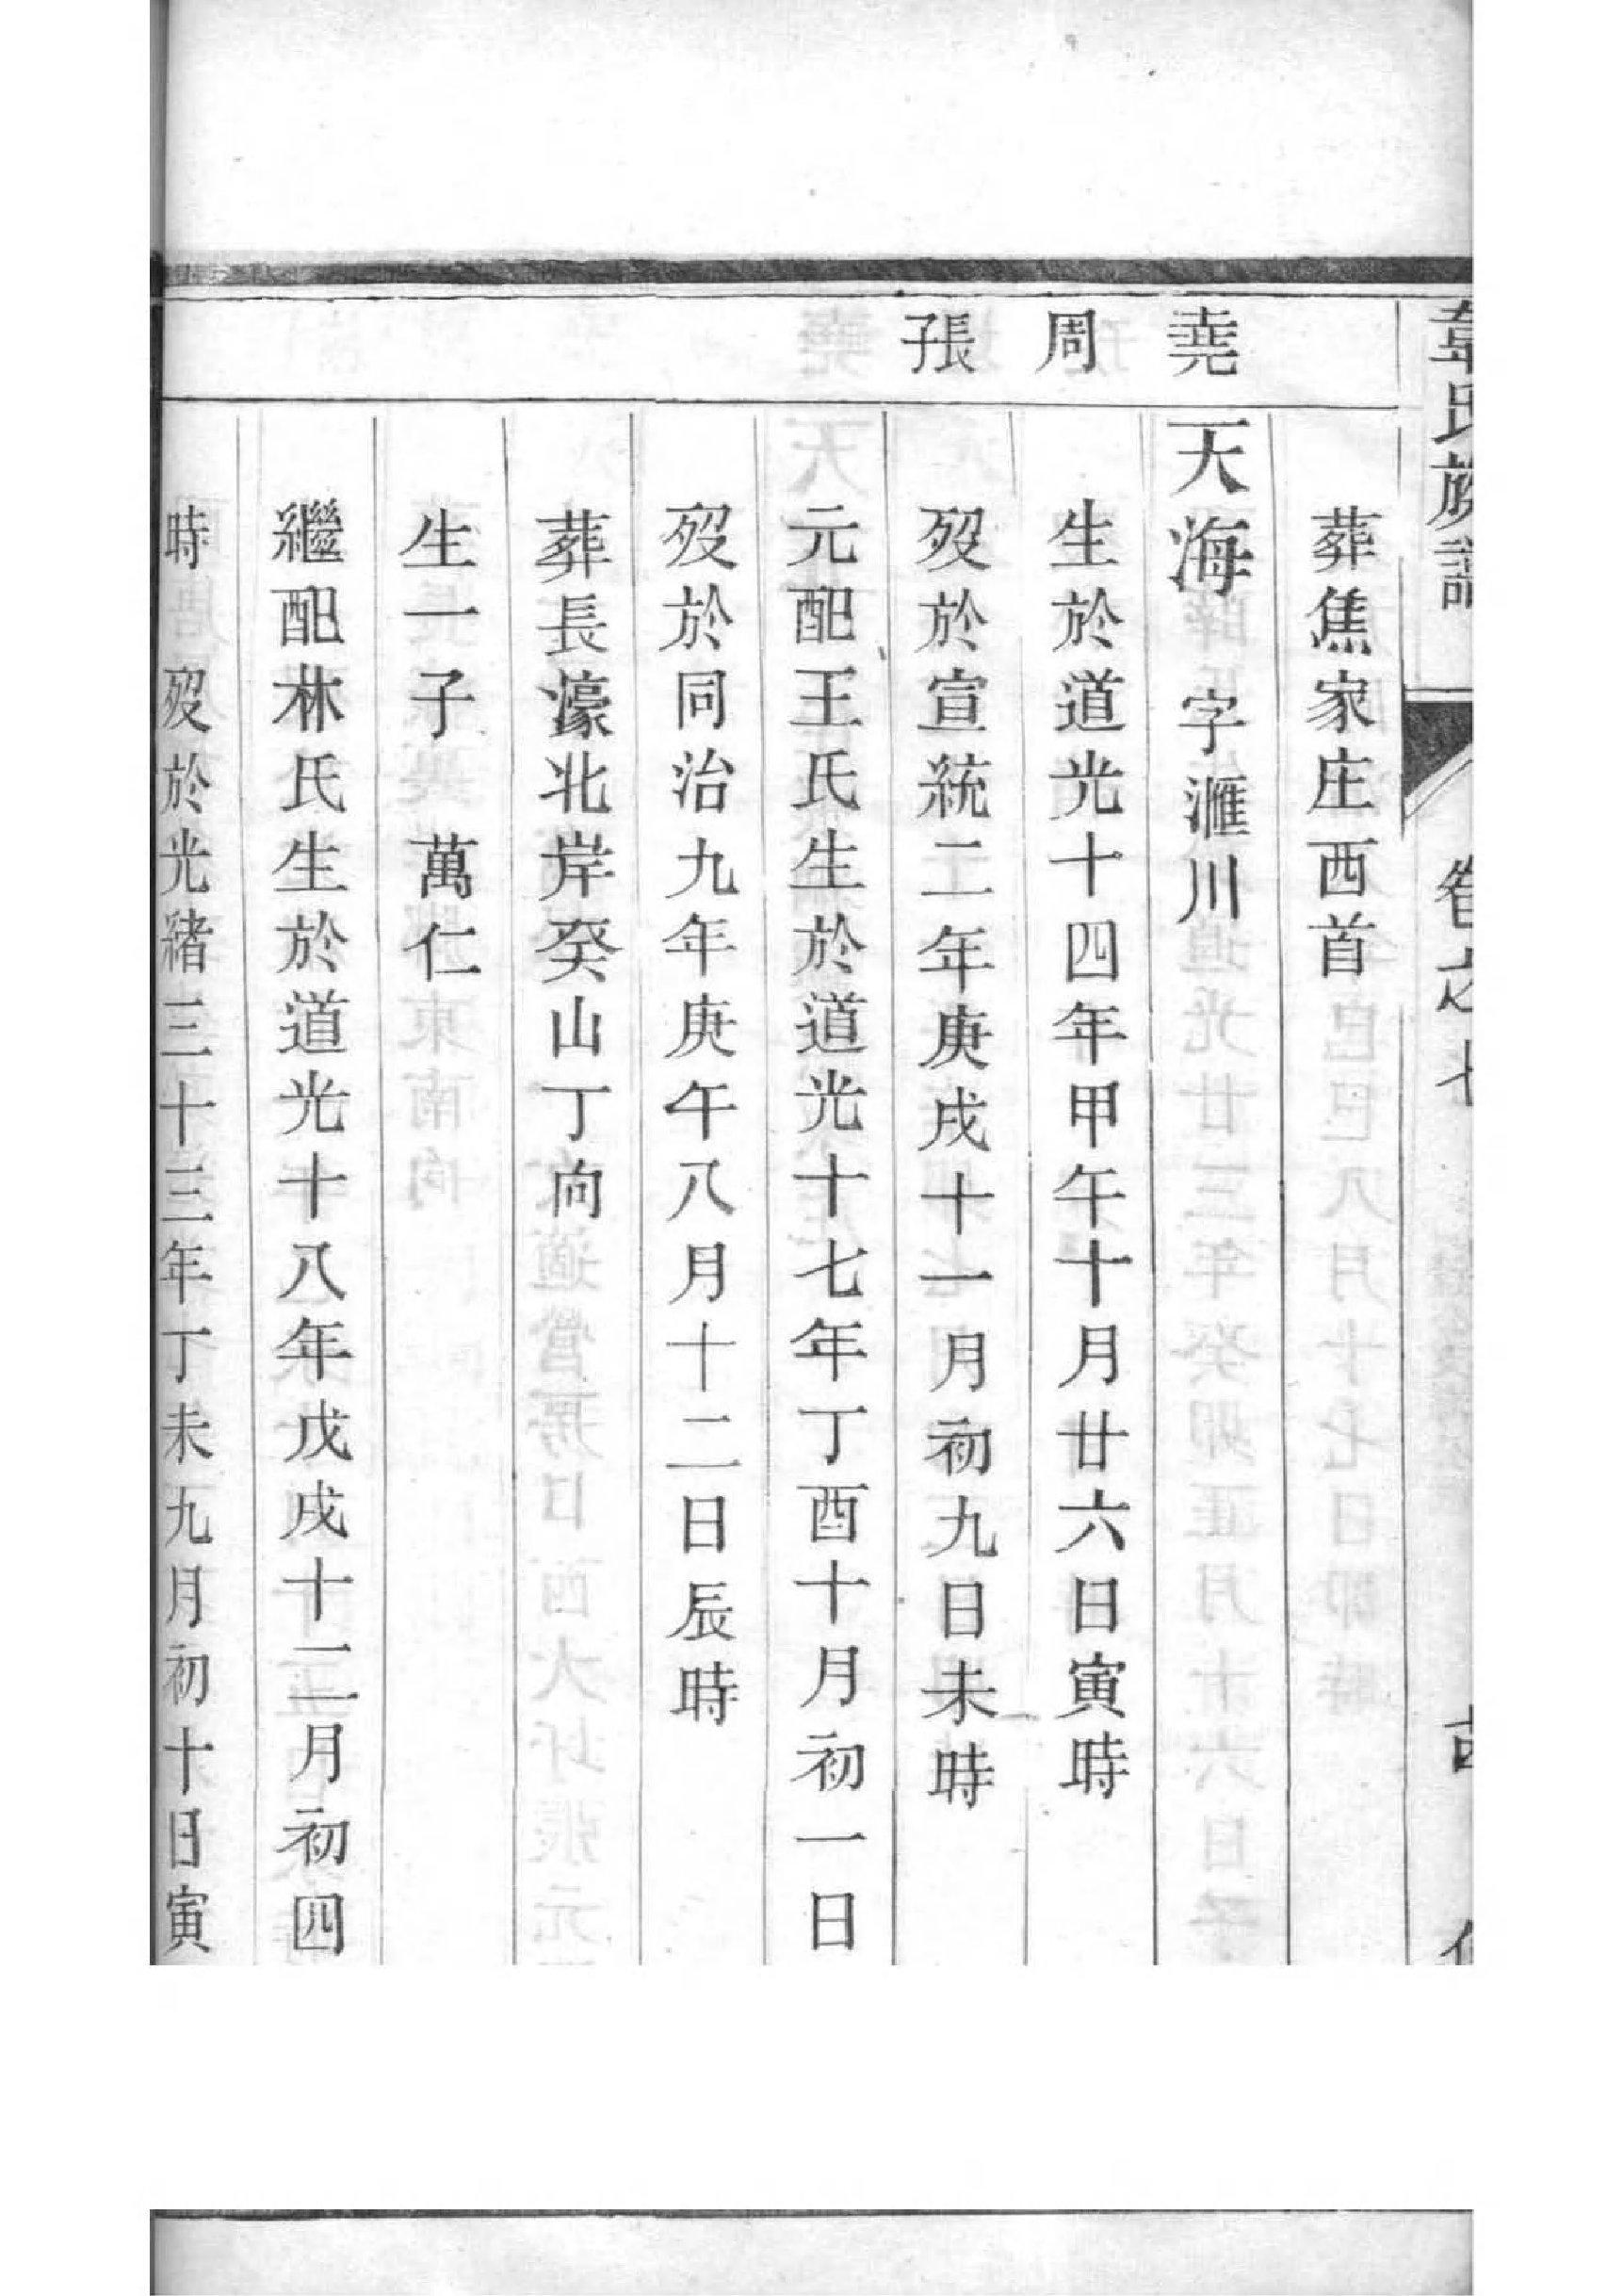 韋氏族譜
卷之七
葬焦家庄西首
堯
天海 字滙川
周
生於道光十四年甲午十月廿六日寅時
張
歿於宣統二年庚戌十一月初九日未時
元配王氏生於道光十七年丁酉十月初一日
歿於同治九年庚午八月十二日辰時
葬長濠北岸癸山丁向
生一子 萬仁
繼配林氏生於道光十八年戊戌十二月初四
時 歿於光緒三十三年丁未九月初十日寅